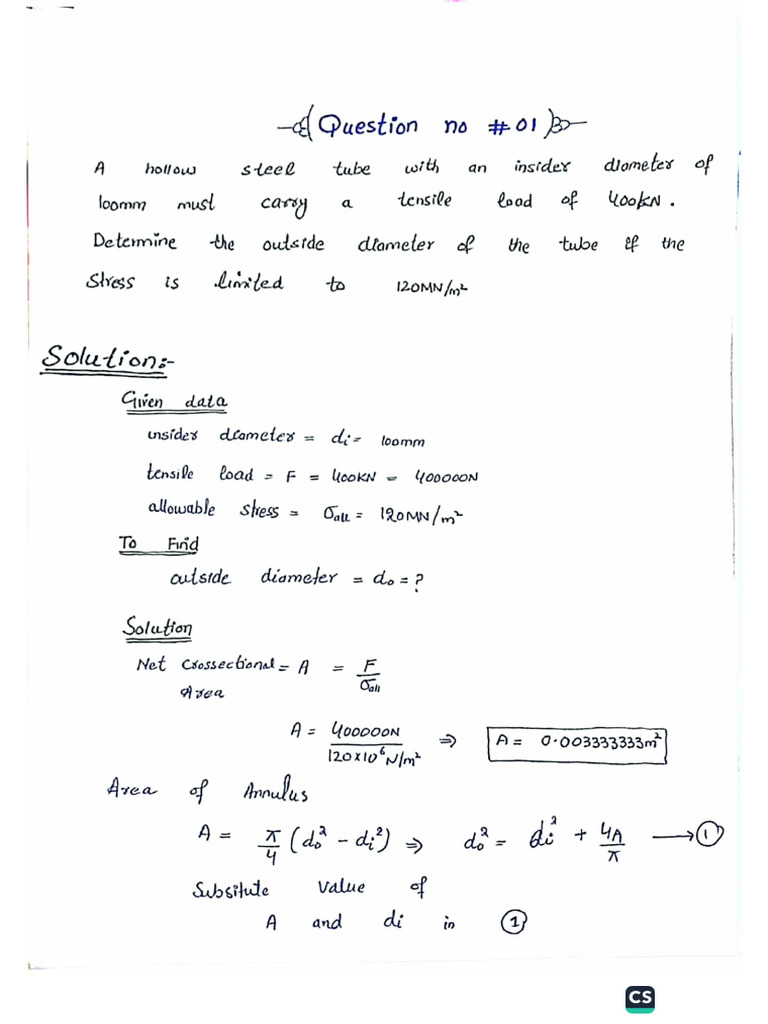 Question no #01
A hollow steel tube with an insider diameter of
100mm must carry a tensile load of 400KN.
Determine the outside diameter of the tube if the
stress is limited to 120MN/m²
Solution:-
Given data
insider diameter = di = 100mm
tensile load = F = 400KN = 400000N
allowable stress = σall = 120MN/m²
To Find
outside diameter = do = ?
Solution
Net Crossectional Area = A = F/σall
A = 400000N / 120×10⁶N/m² ⇒ A = 0.003333333m²
Area of Annulus
A = π/4 (do² - di²) ⇒ do² = di² + 4A/π → ①
Subsitute value of
A and di in ①
CS